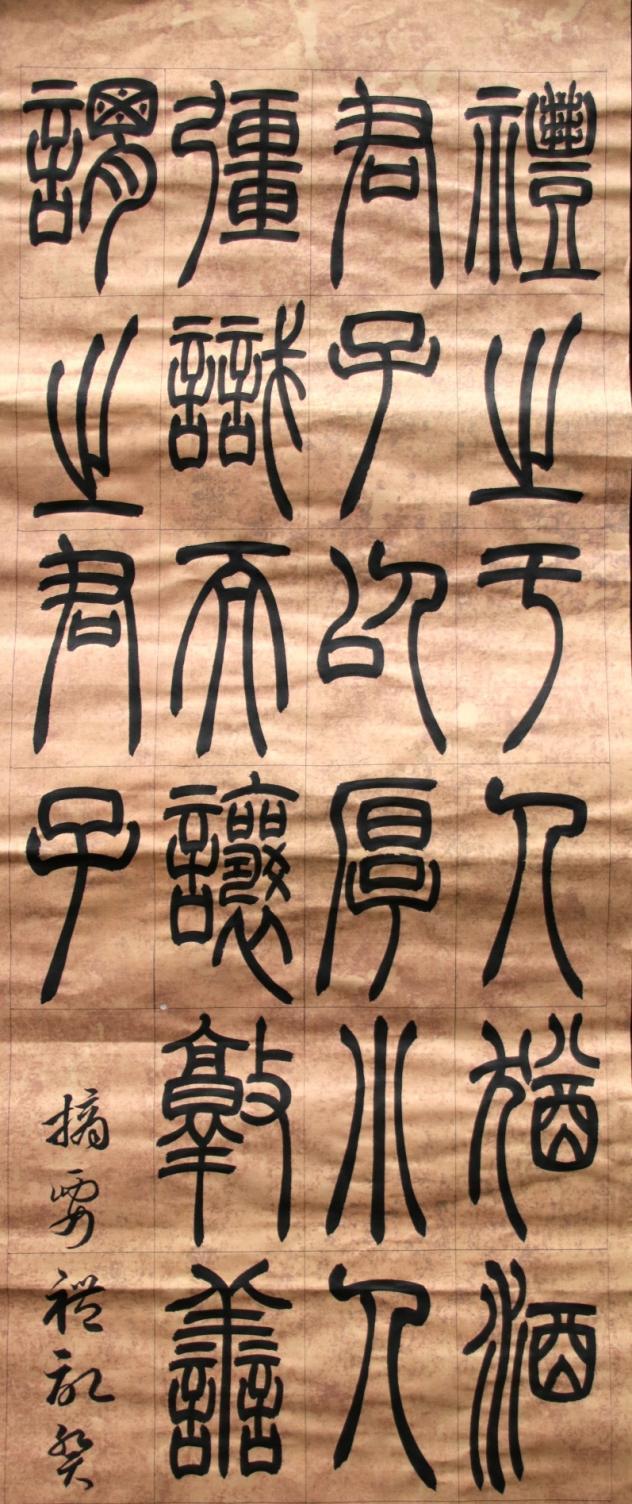 禮之于人猶酒
君子以厚小人
彊識而讓敦善
謂之君子
摘要礼記